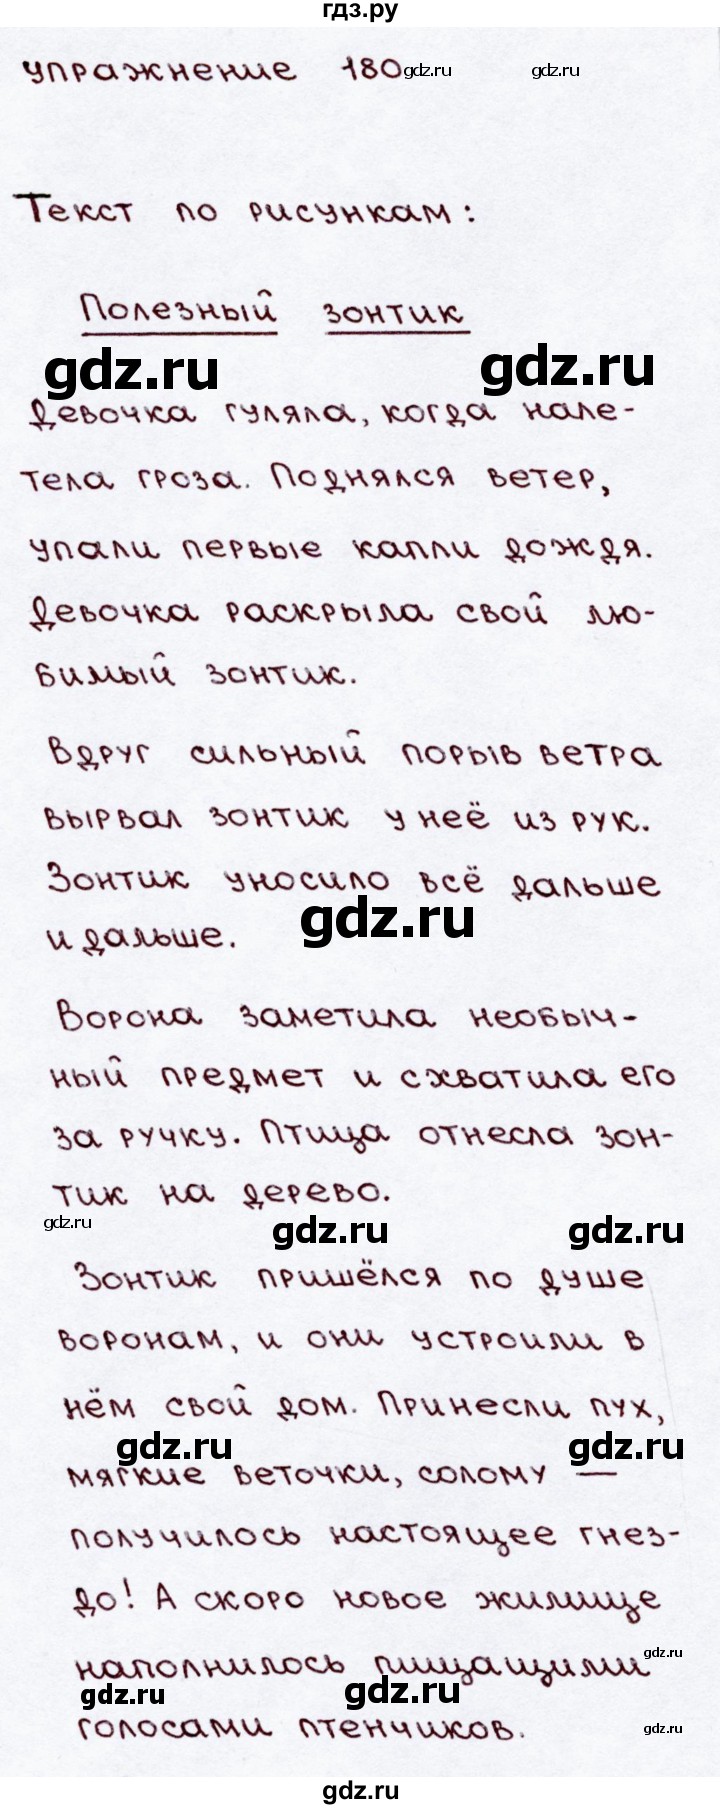 гдз.ру
упражнение 180
gdz.ru gdz.ru
Текст по рисункам:
Полезный зонтик
gdz.ru gdz.ru
Девочка гуляла, когда нале-
тела гроза. Поднялся ветер,
упали первые капли дождя.
Девочка раскрыла свой лю-
бимый зонтик.
Вдруг сильный порыв ветра
вырвал зонтик у неё из рук.
Зонтик уносило всё дальше
и дальше.
gdz.ru
Ворона заметила необыч-
ный предмет и схватила его
за ручку. Птица отнесла зон-
тик на дерево.
gdz.ru gdz.ru gdz.ru
Зонтик пришёлся по душе
воронам, и они устроили в
нём свой дом. Принесли пух,
gdz.ru gdz.ru
мягкие веточки, солому —
получилось настоящее гнез-
до! А скоро новое жилище
gdz.ru
наполнилось пищащими
gdz.ru gdz.ru
голосами птенчиков.
gdz.ru
gdz.ru